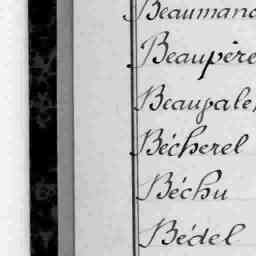 Beaumano
Beaupère
Beaupale
Bécherel
Béchu
Bédel